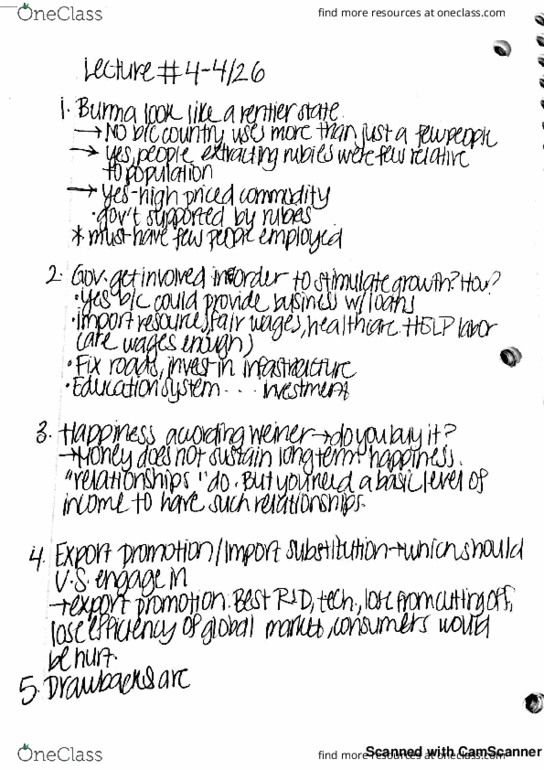 OneClass
find more resources at oneclass.com
Lecture #4-4/26
1. Burma look like a rentier state
→ No b/c country uses more than just a few people
→ yes, people extracting rubies were few relative
to population
→ yes-high priced commodity
• gov't supported by rubies
* must have few people employed
2. Gov. get involved in order to stimulate growth? How?
• Yes b/c could provide business w/ loans
• Import resources, fair wages, healthcare. HELP labor
(are wages enough)
• Fix roads, invest in infastructure
• Education system... investment
3. Happiness according weiner → do you buy it?
→ Money does not sustain long term happiness.
"relationships" do. But you need a basic level of
income to have such relationships.
4. Export promotion/Import substitution → which should
U.S. engage in
→ export promotion: Best R&D, tech., lose from cutting off,
lose efficiency of global market, consumers would
be hurt.
5. Drawbacks are
OneClass
find more resources at oneclass.com
Scanned with CamScanner